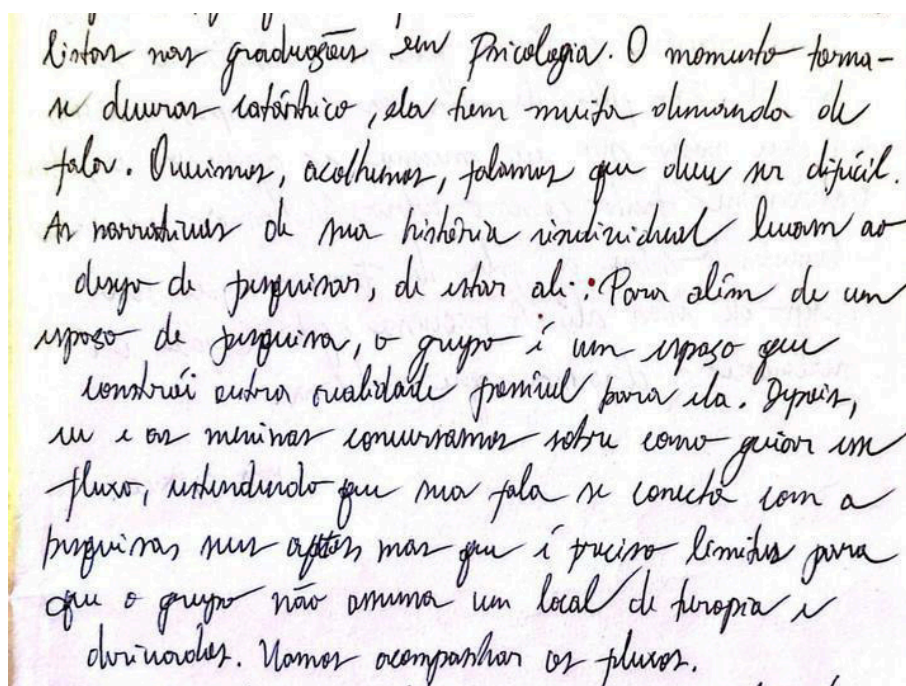 listas nas graduações em Psicologia. O momento torna-
se deveras catártico, ela tem muita demanda de
fala. Ouvimos, acolhemos, falamos que deve ser difícil.
As narrativas de sua história individual levam ao
desejo de pesquisar, de estar ali. Para além de um
espaço de pesquisa, o grupo é um espaço que
constrói outra realidade possível para ela. Depois,
eu e as meninas conversamos sobre como guiar esse
fluxo, entendendo que sua fala se conecta com a
pesquisas seus mas que é preciso limites para
que o grupo não assuma um local de terapia e
derivados. Vamos acompanhar os fluxos.